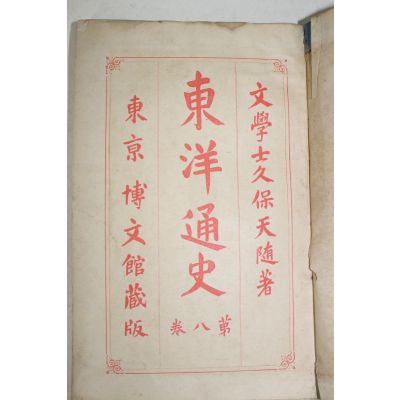 文學士久保天随著
東洋通史
第八卷
東亰博文館藏版